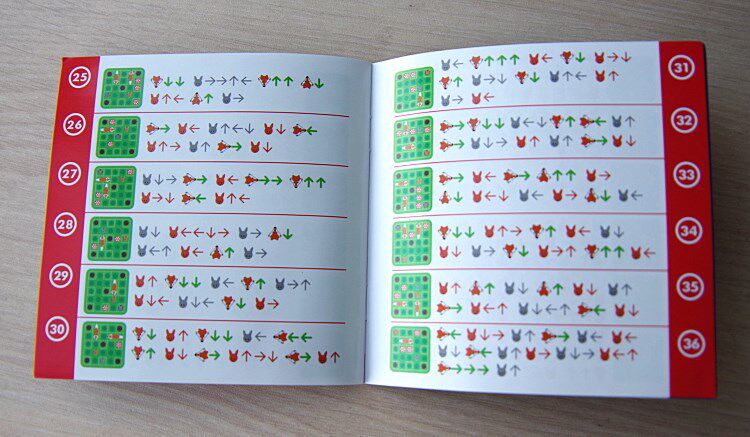 25
26
27
28
29
30
31
32
33
34
35
36